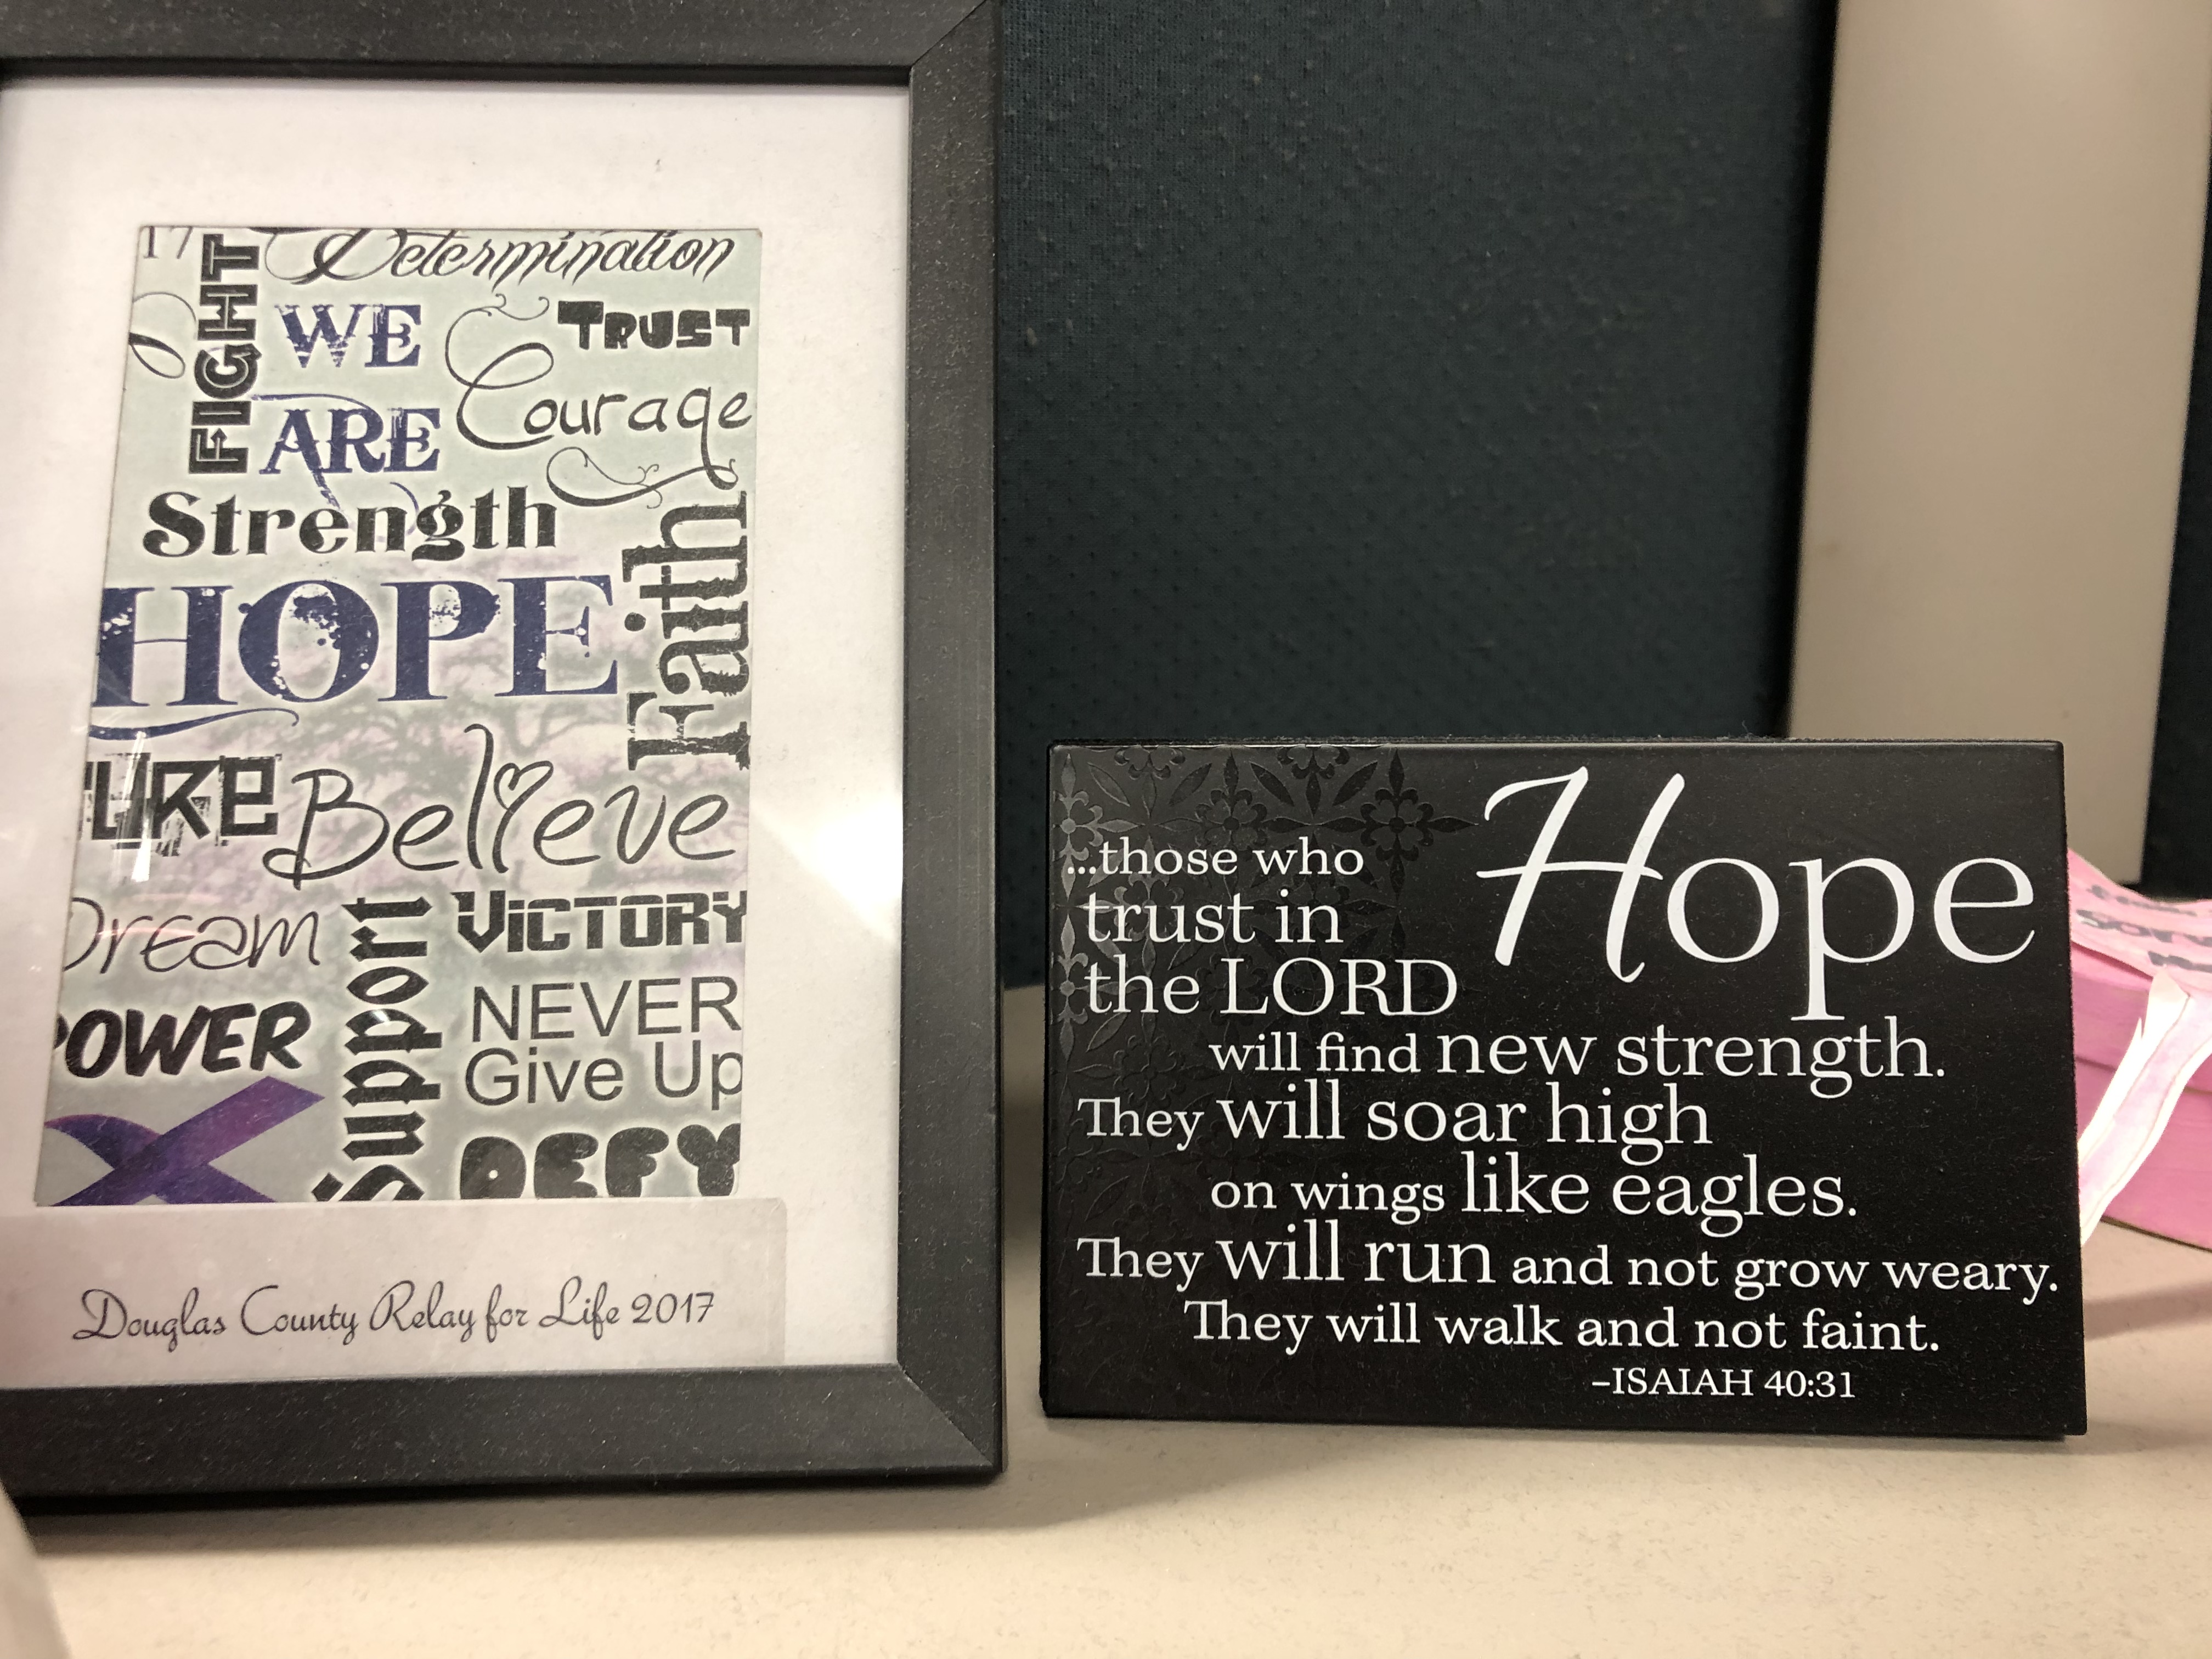 17
FIGHT
Determination
WE
TRUST
ARE
Courage
Strength
Faith
HOPE
URE
Believe
Dream
Support
VICTORY
POWER
NEVER
Give Up
DEFY
Douglas County Relay for Life 2017
Hope
...those who
trust in
the LORD
will find new strength.
They will soar high
on wings like eagles.
They will run and not grow weary.
They will walk and not faint.
–ISAIAH 40:31